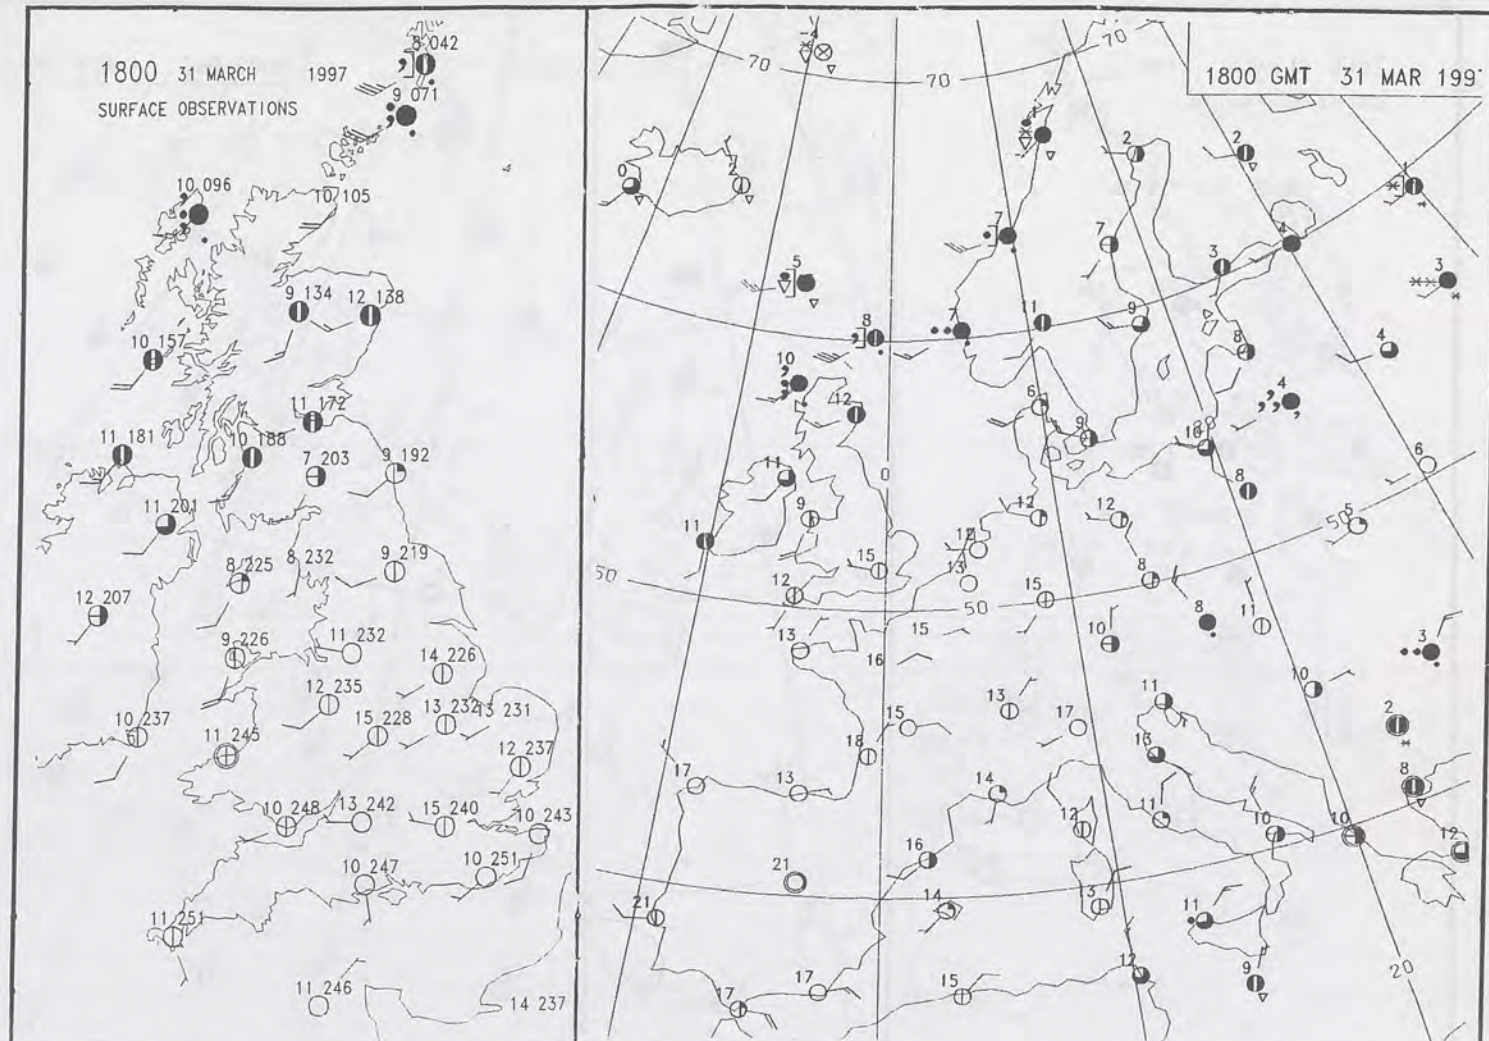 1800 31 MARCH 1997
SURFACE OBSERVATIONS
8 042
9 071
10 096
10 105
9 134
12 138
10 157
11 172
11 181
10 188
7 203
9 192
11 201
8 225
8 232
9 219
12 207
9 226
11 232
14 226
12 235
10 237
11 245
15 228
13 232
13 231
12 237
10 248
13 242
15 240
10 243
10 247
10 251
11 251
11 246
14 237
1800 GMT 31 MAR 199
-4
70
70
70
0
2
1
2
2
1
7
7
4
3
3
5
8
7
11
9
8
4
10
12
6
9
4
20
10
8
6
11
0
9
12
12
50
5
11
50
12
15
12
13
50
15
8
11
8
3
13
15
16
10
15
13
17
11
10
2
18
13
17
13
14
12
11
10
8
10
12
16
21
21
14
13
11
12
9
17
17
15
20